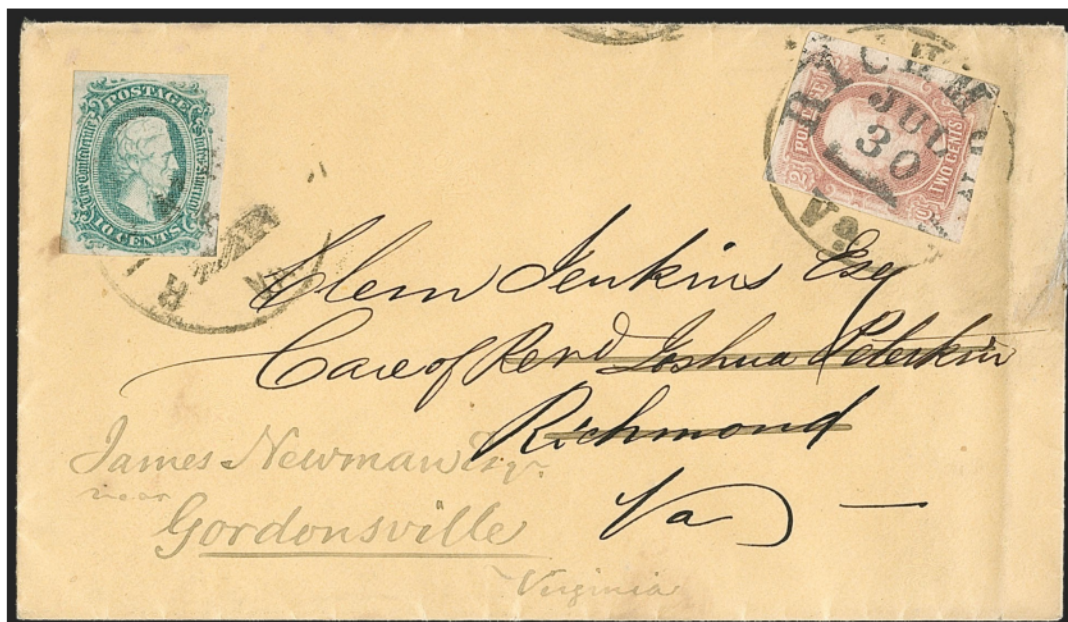 POSTAGE
The Confederate States of America
10 CENTS
RICHM
JUL
30
VA
POST OFFICE
TWO CENTS
2
Clem Jenkins Esq
Care of Revd Joshua Peterkin
Richmond
Va
James Newman Esqr.
near
Gordonsville
Virginia